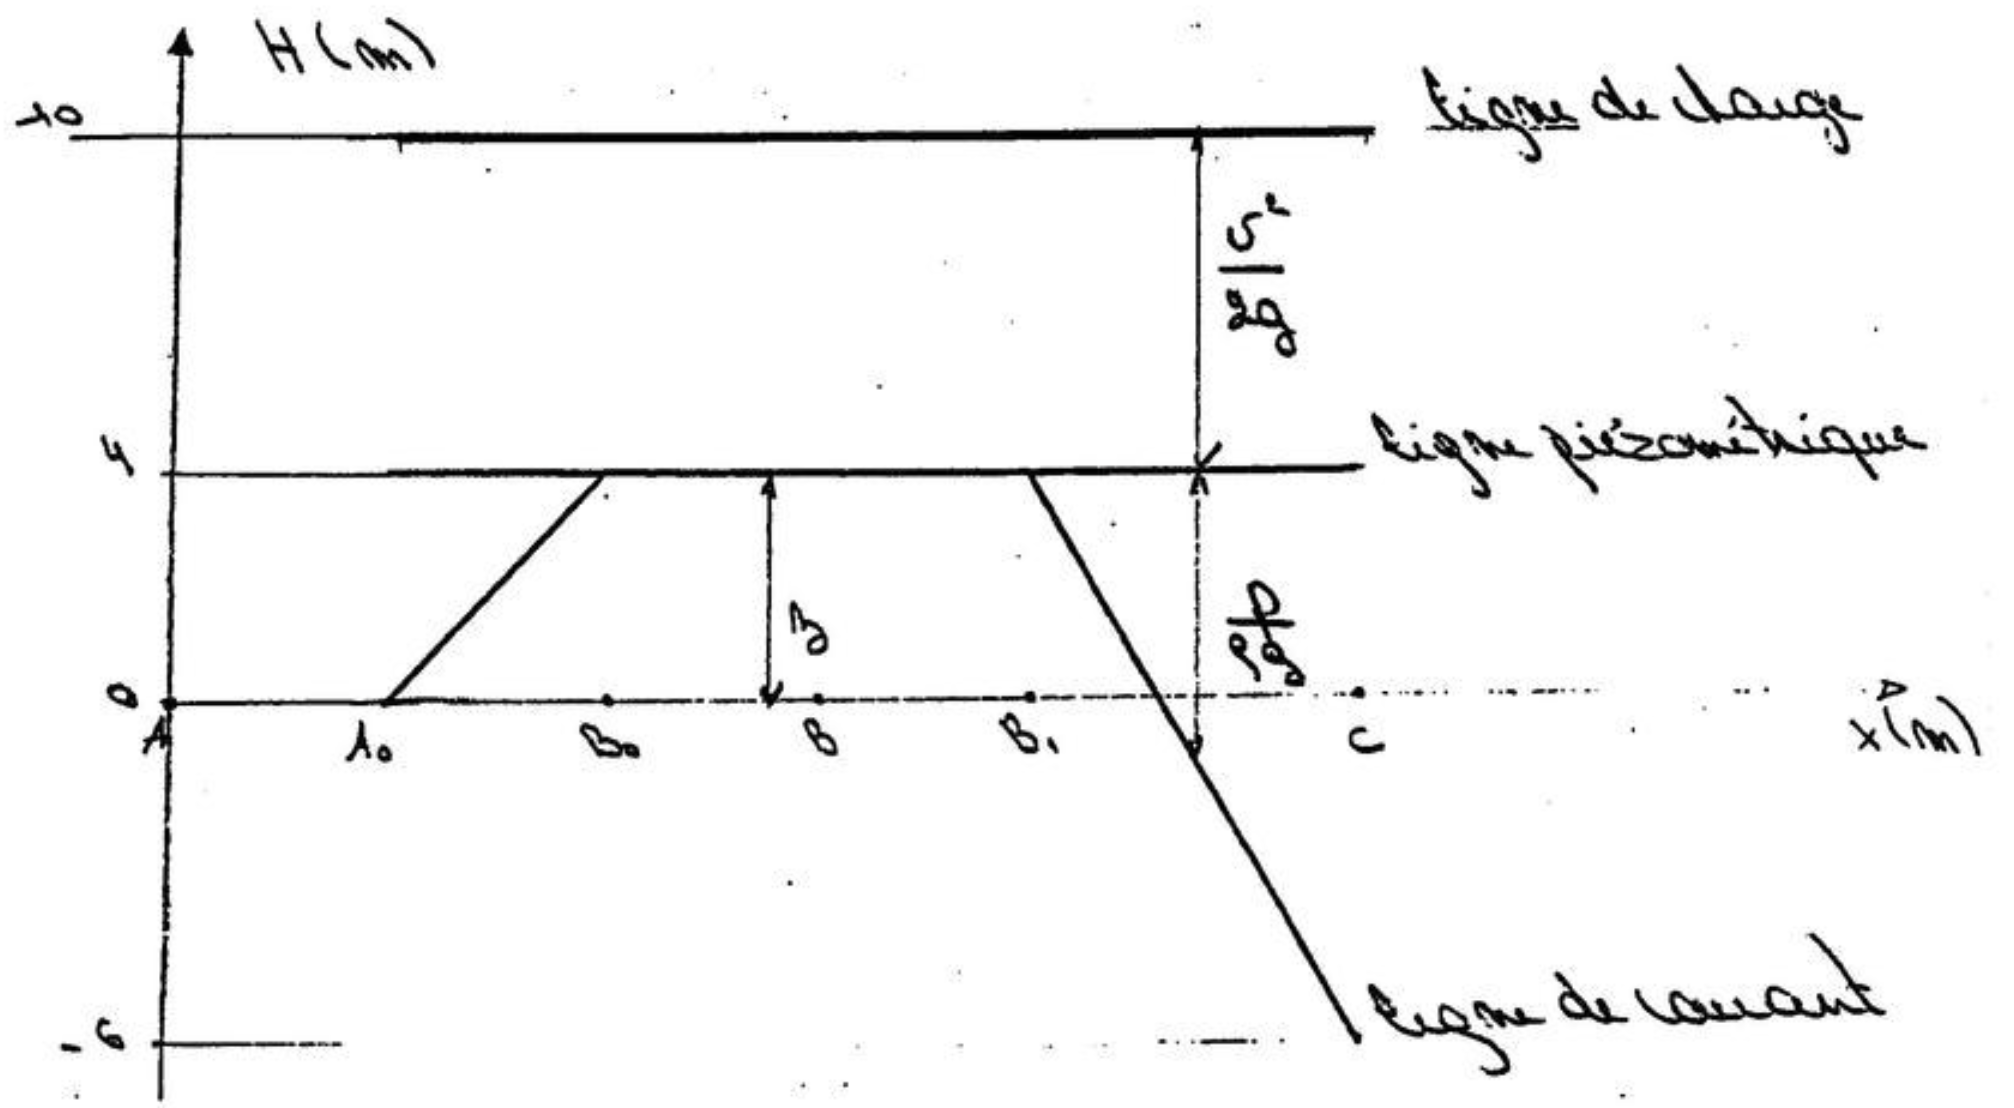 H (m)
10
ligne de charge
v²
2g
4
ligne piézométrique
z
p
ρg
0
A
A₀
B₀
B
B₁
C
x (m)
-6
ligne de courant